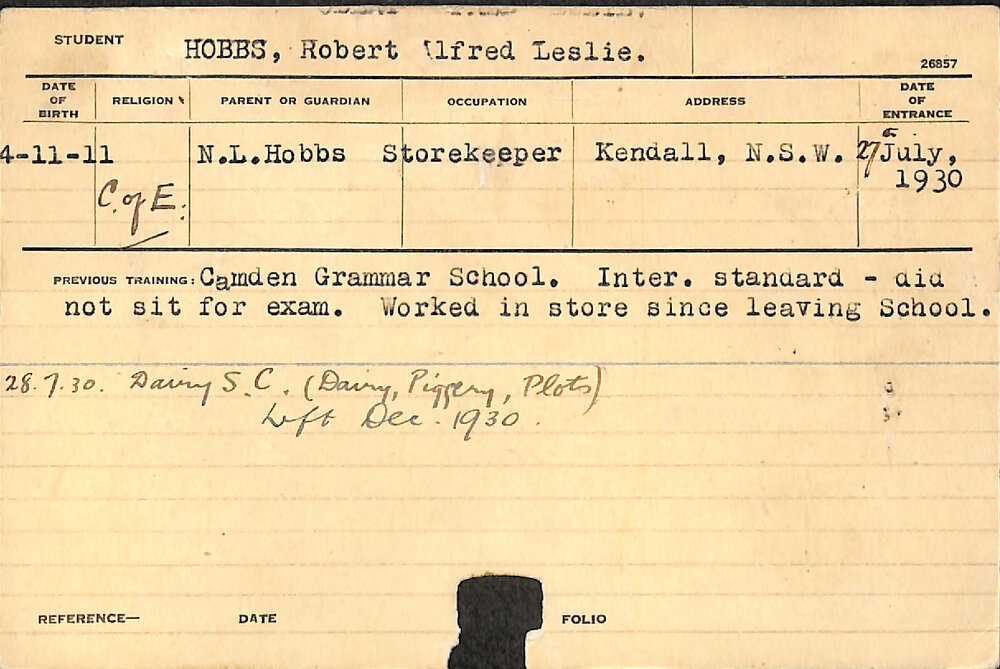 STUDENT HOBBS, Robert Alfred Leslie.
26857
DATE OF BIRTH RELIGION PARENT OR GUARDIAN OCCUPATION ADDRESS DATE OF ENTRANCE
4-11-11 N.L.Hobbs Storekeeper Kendall, N.S.W. 27 July,
1930
C. of E.
PREVIOUS TRAINING: Camden Grammar School. Inter. standard - did
not sit for exam. Worked in store since leaving School.
28.7.30. Dairy S.C. (Dairy, Piggery, Plots)
Left Dec. 1930.
REFERENCE— DATE FOLIO